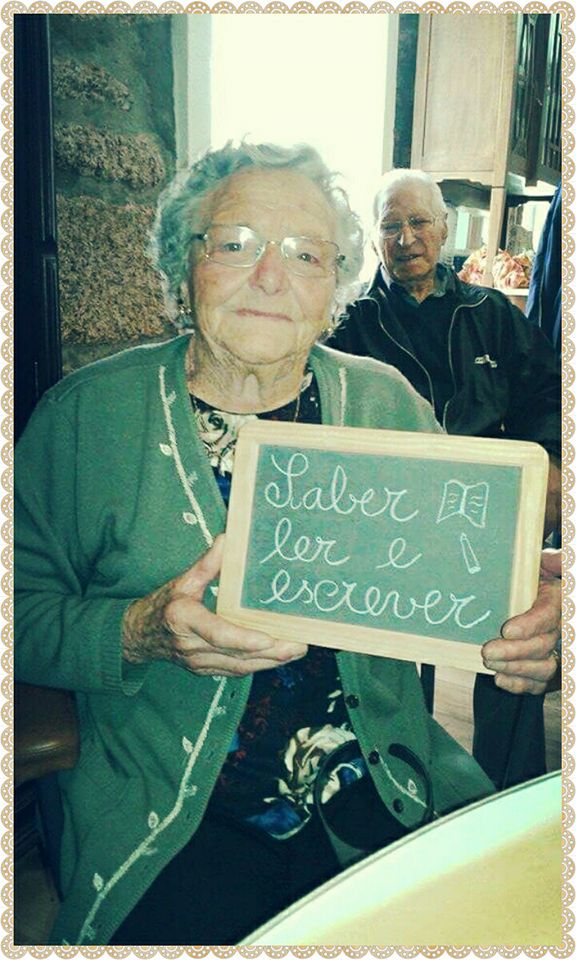 Saber
ler e
escrever